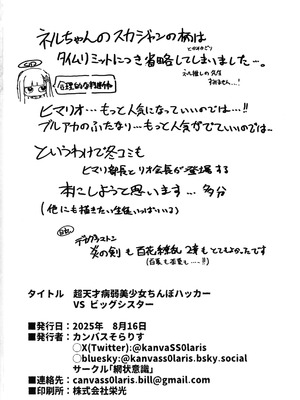 ネルちゃんのスカジャンの柄は
タイムリミットにつき省略してしまいました…。
すみません…!
合理的な判断
ヒマリオ…もっと人気になっていいのでは…!!
ブルアカのふたなり…もっと人気がでていいのでは…
というわけで冬コミも
ヒマリ部長とリオ会長が登場する
本にしようと思います…多分
(他にも描きたい生徒いっぱいいる)
デカグラマトン
炎の剣も百花繚乱2章もとてもよかったです
タイトル 超天才病弱美少女ちんぽハッカー
VS ビッグシスター
■発行日：2025年 8月16日
■発行者：カンバスそらりす
〇X(Twitter):@kanvaSS0laris
〇bluesky:@kanvass0laris.bsky.social
サークル「網状意識」
■連絡先：canvass0laris.bill@gmail.com
■印刷所：株式会社栄光